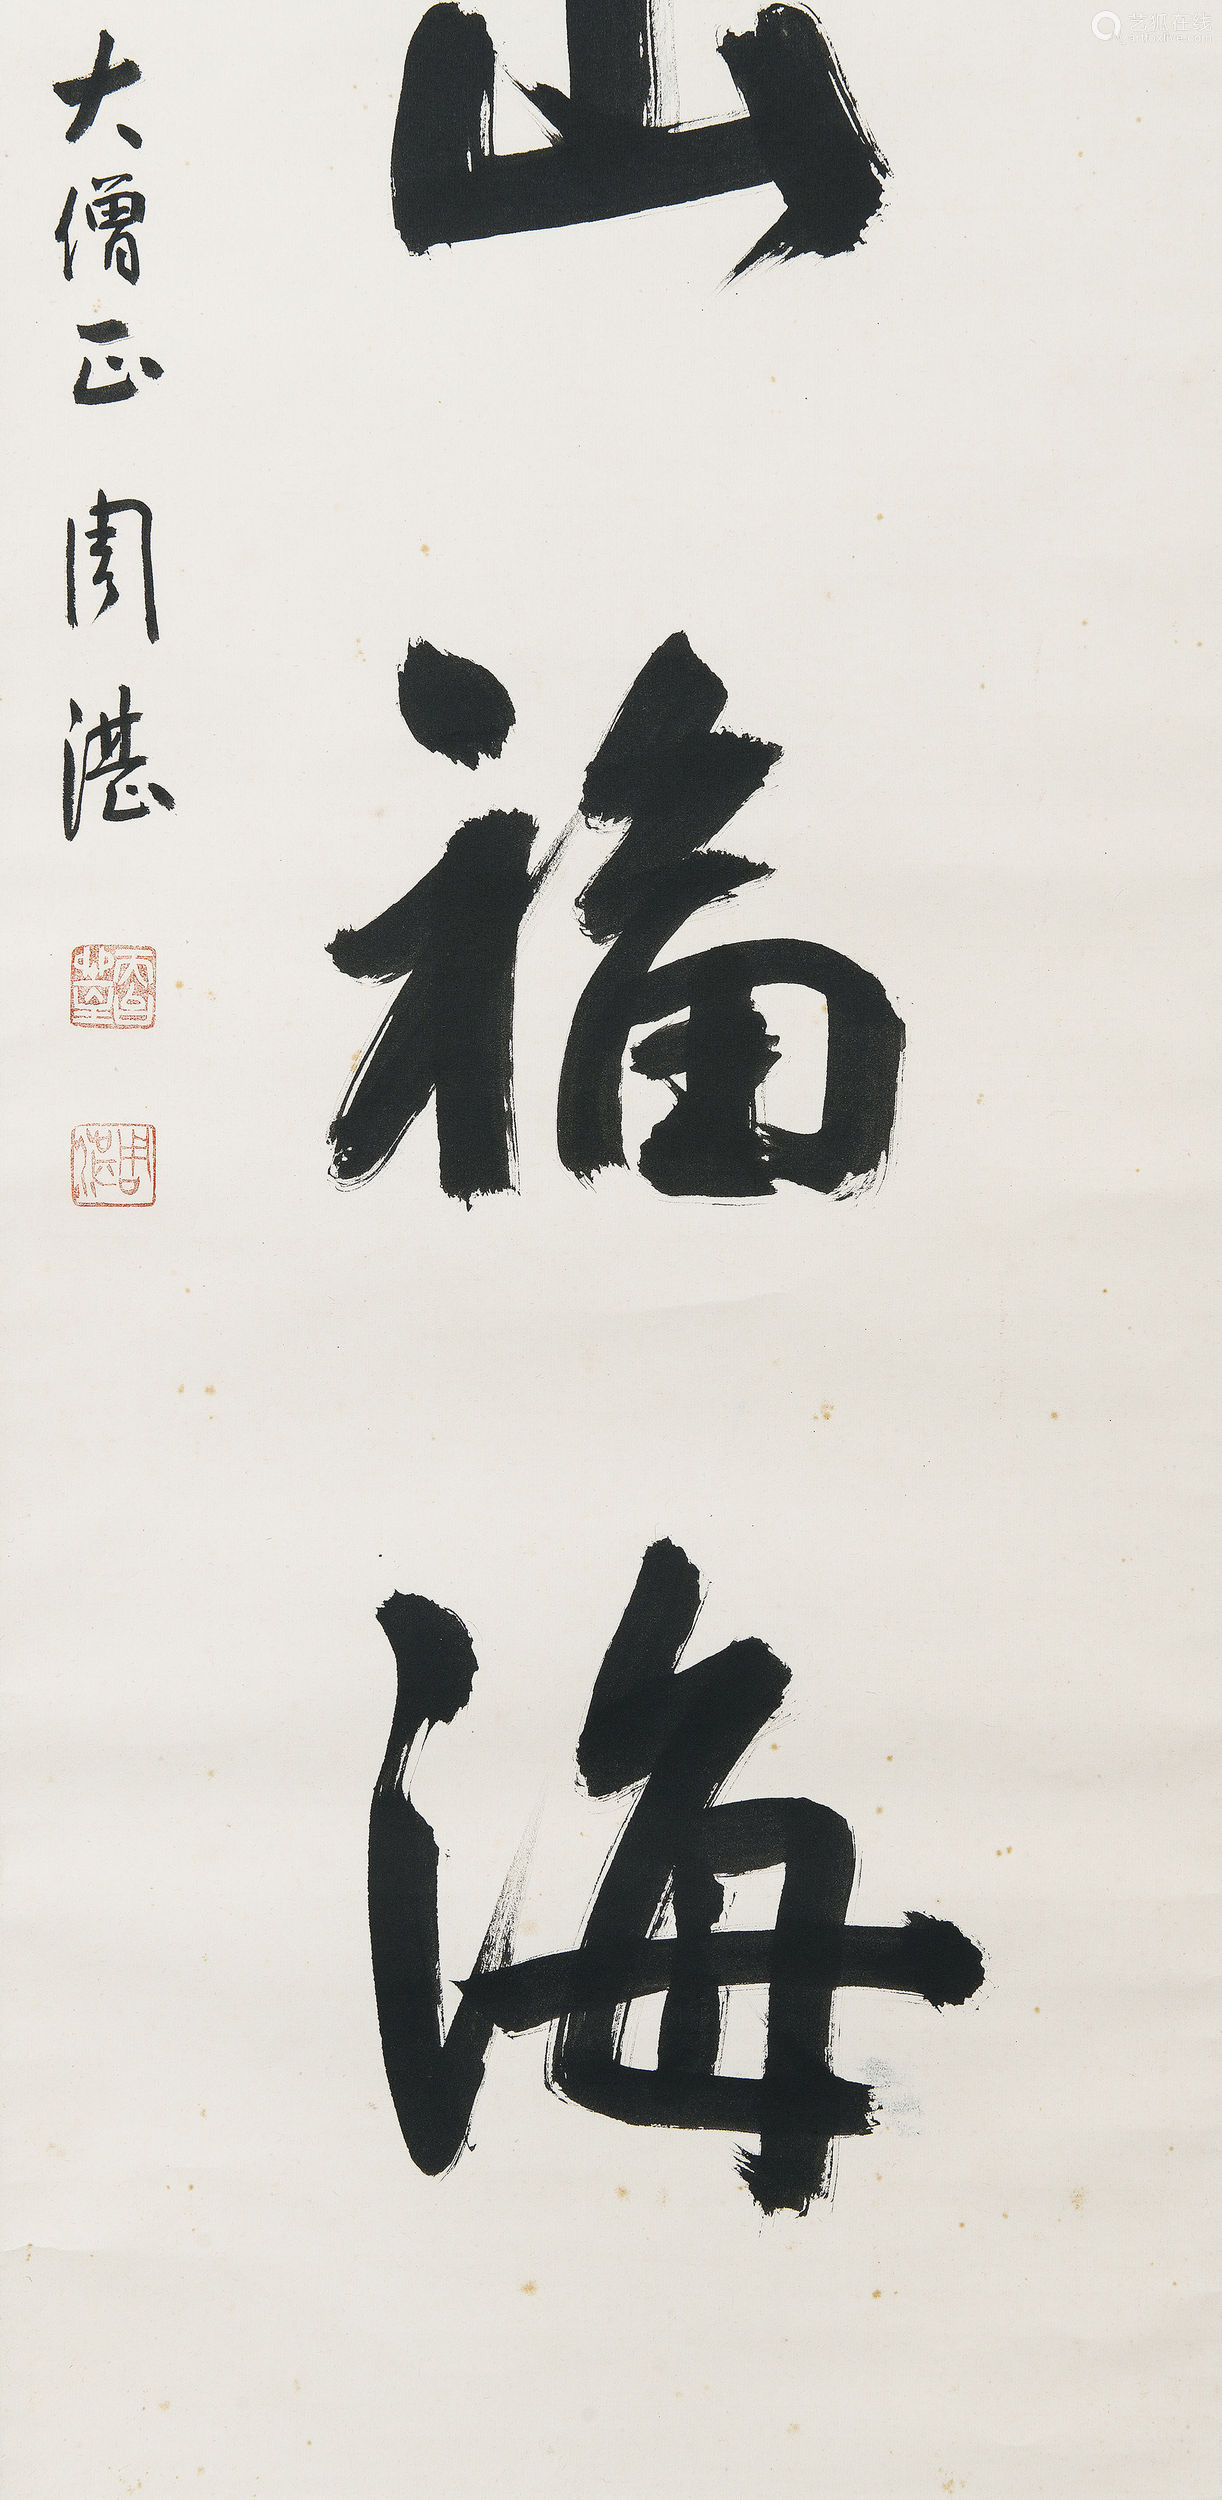 山福海
大僧正 周湛
周湛
艺狐在线
artfoxlive.com